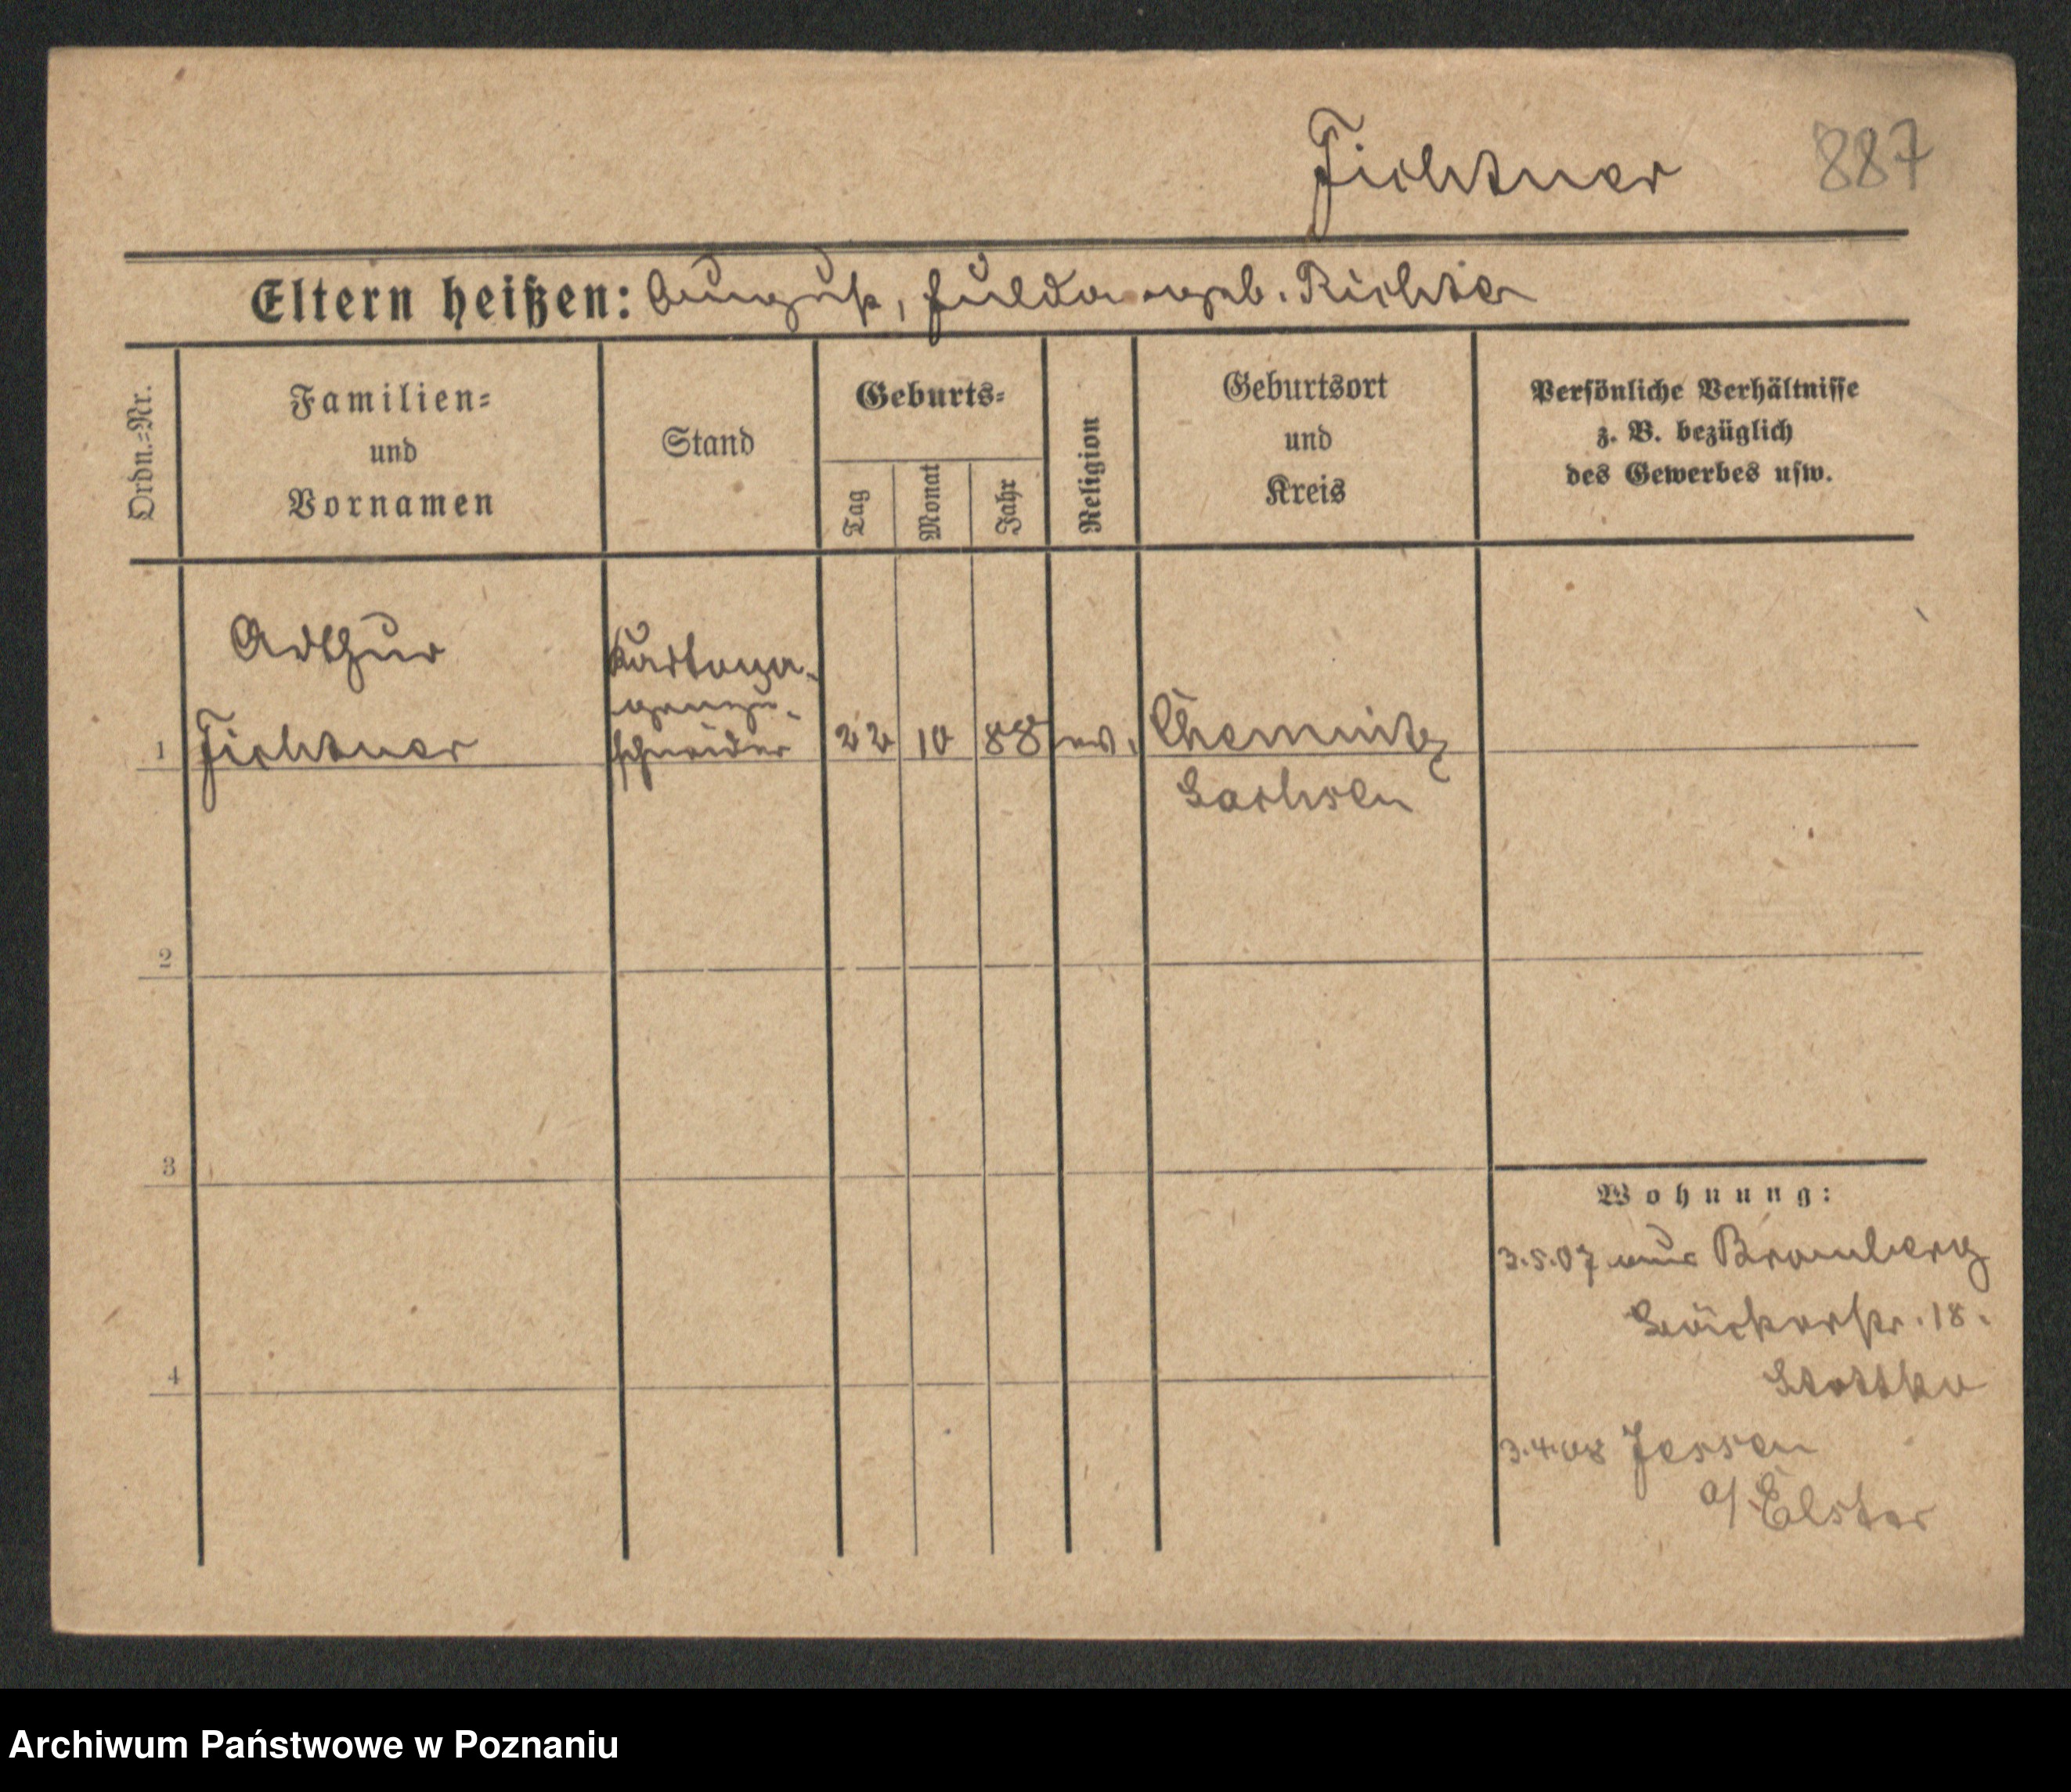 Fichtner 887
Eltern heißen: August, Hulda geb. Richter
Ordn.=Nr.
Familien=
und
Vornamen
Stand
Geburts=
Tag
Monat
Jahr
Religion
Geburtsort
und
Kreis
Persönliche Verhältnisse
z. B. bezüglich
des Gewerbes usw.
Arthur
Kartona-
genzu-
1 Fichtner schneider 22 10 88 ev. Chemnitz
Sachsen
2
3
Wohnung:
3.5.07 aus Bromberg
18.
4
3.4.08 Jessen
a/ Elster
Archiwum Państwowe w Poznaniu